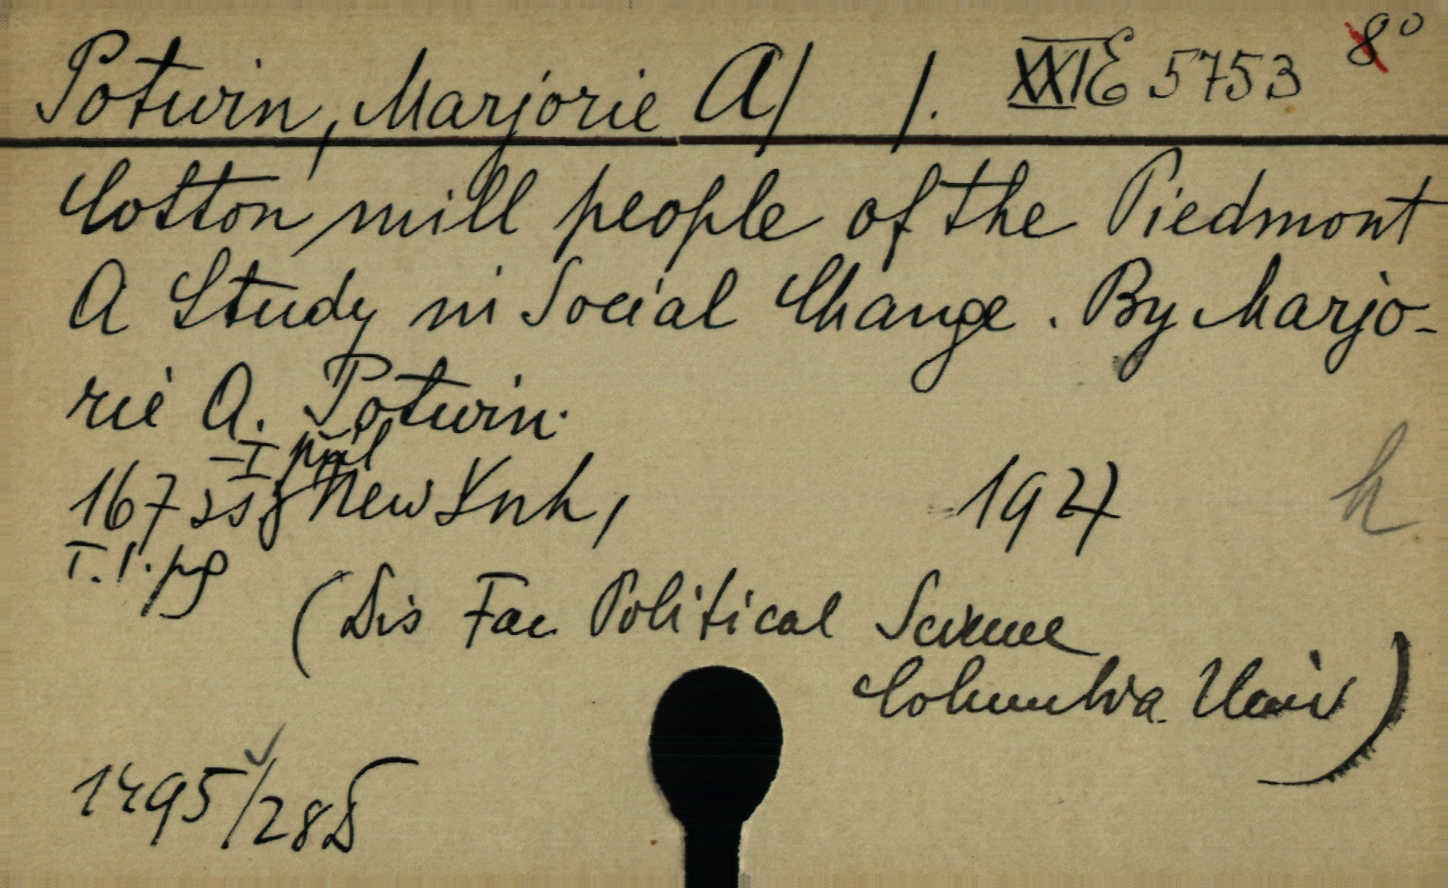 Potwin, Marjorie A/ /. XXIE 5753 8°
Cotton mill people of the Piedmont
A Study in Social Change. By Marjo-
rie A. Potwin.
167 ss 8 New York, 1927 h
T. 1. pg
(Dis Fac Political Science
Columbia Univ)
1495/28